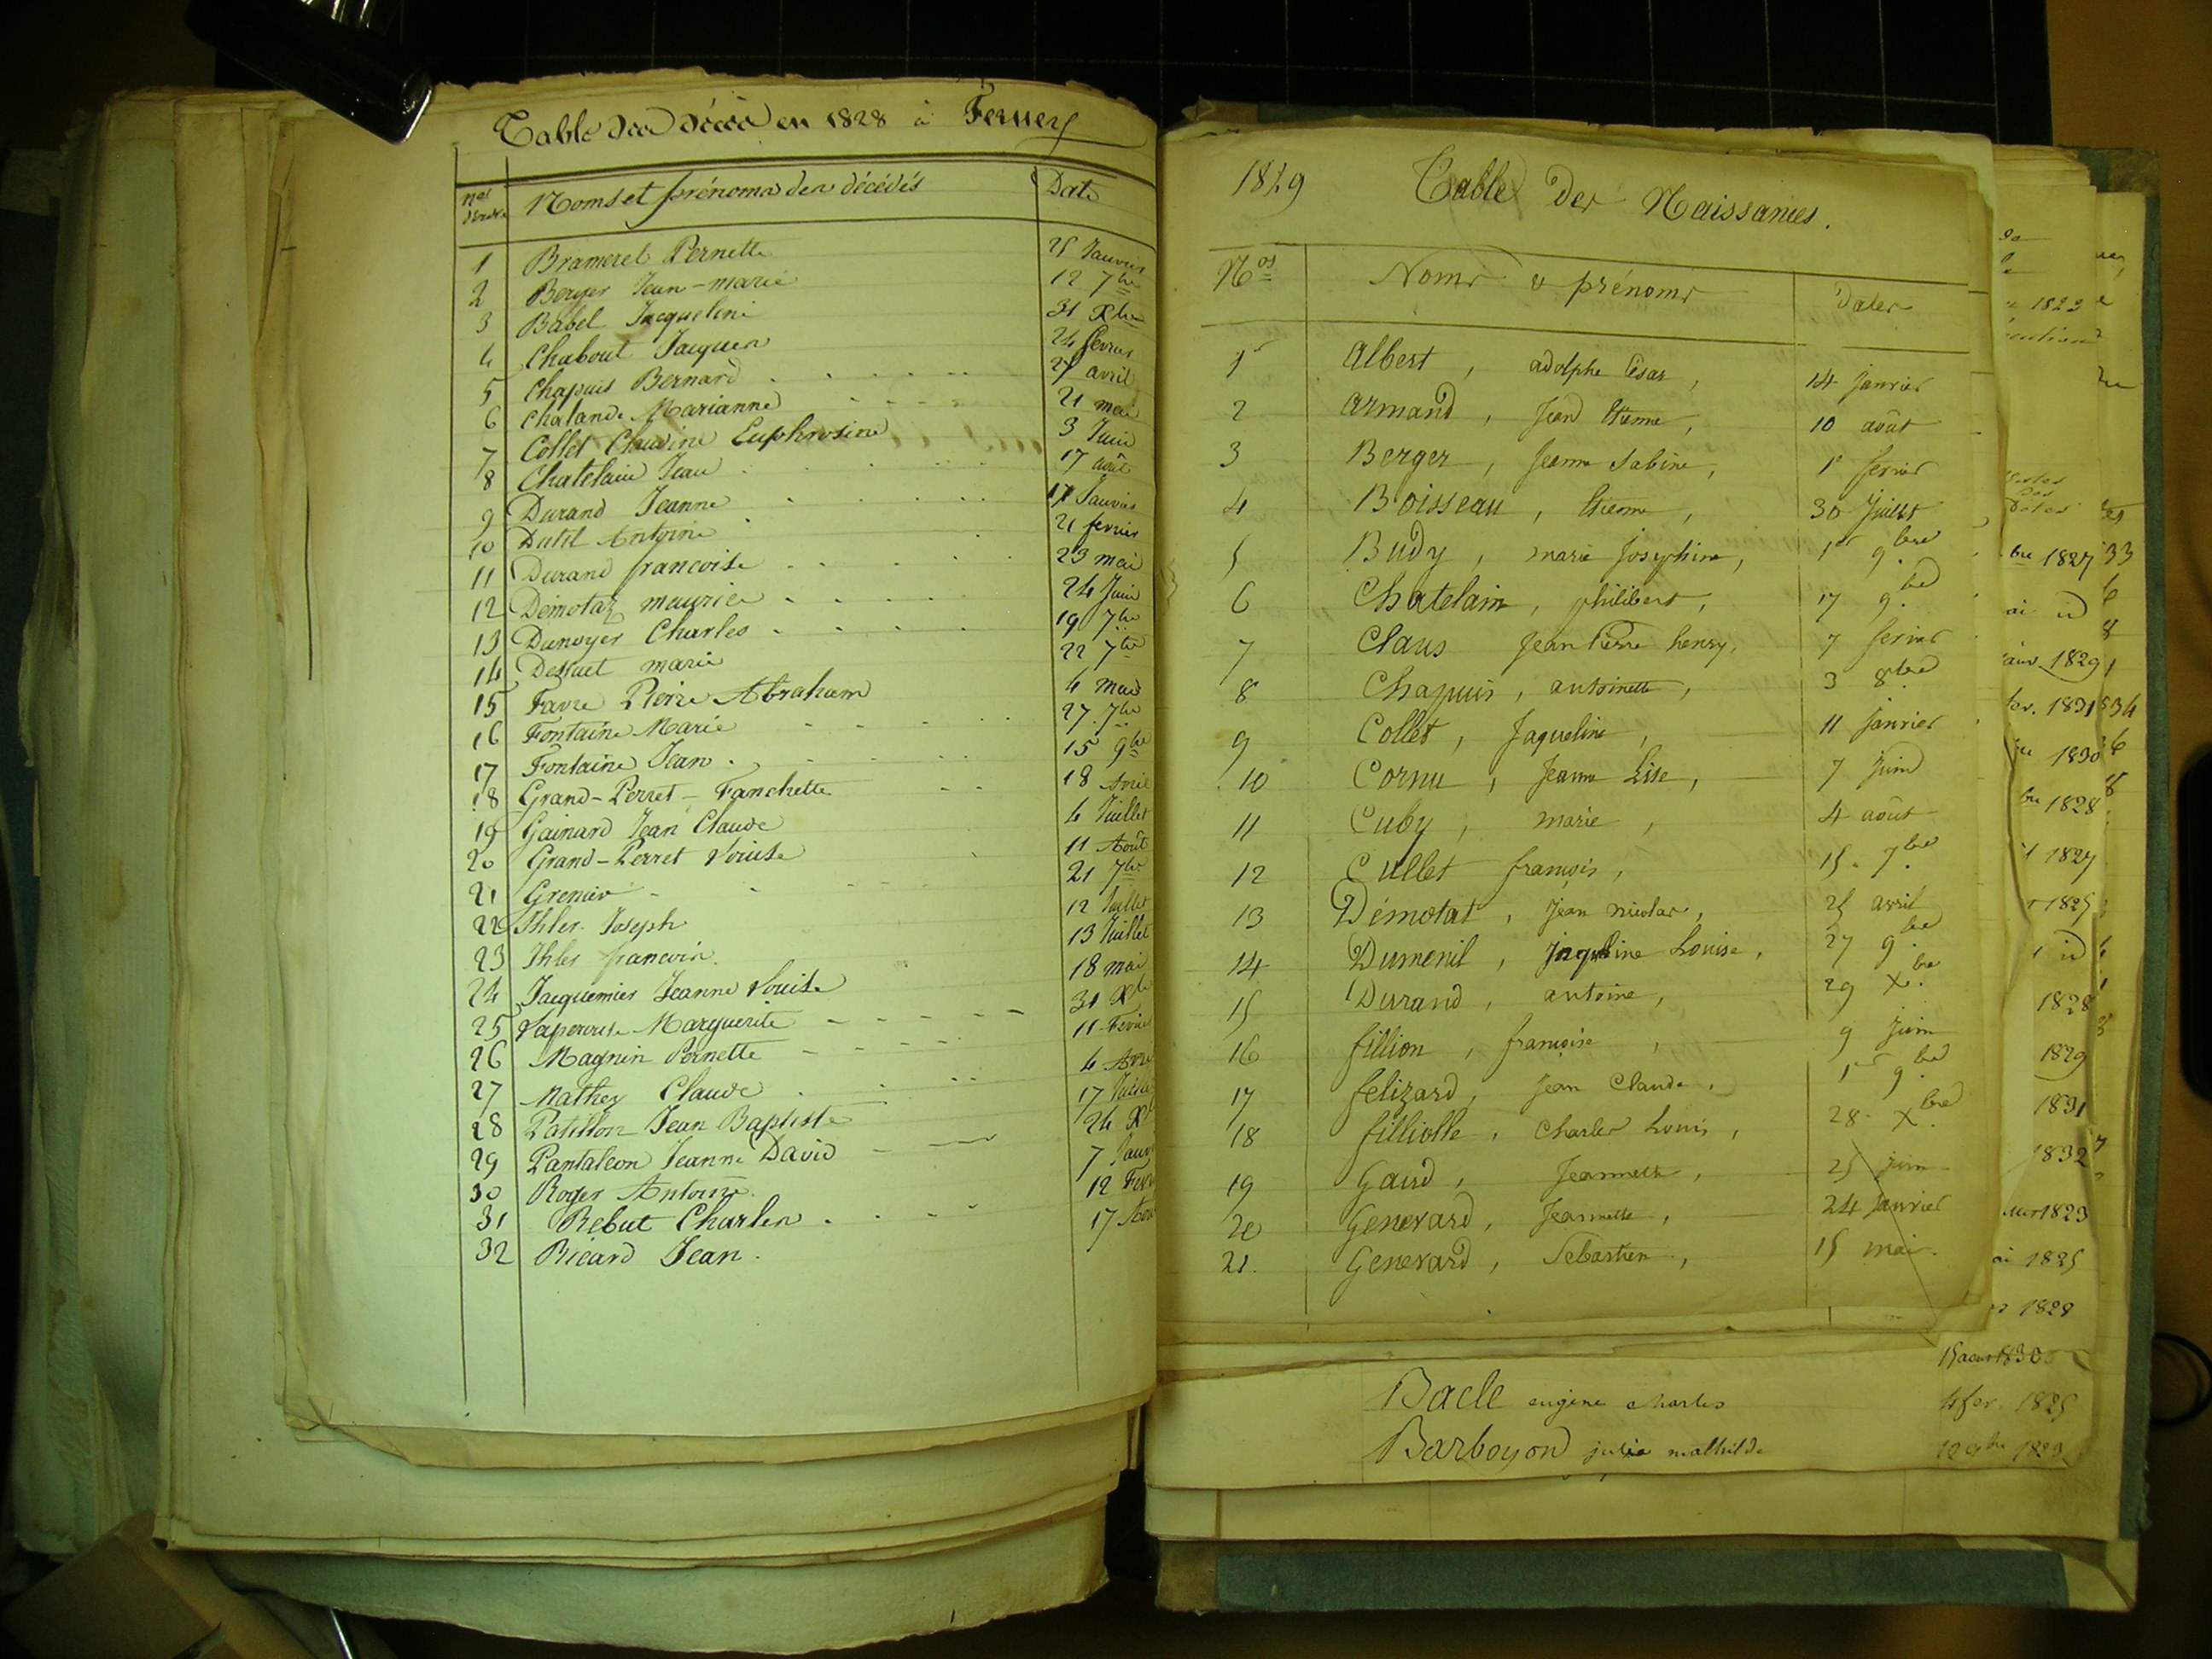 Table des décès en 1828 à Ferney
nos d'ordre Noms et prénoms des décédés Date
1 Bramerel Pernette 25 Janvier
2 Berger Jean-marie 12 7bre
3 Babel Jacqueline 31 Xbre
4 Chabout Jacques 24 fevrier
5 Chapuis Bernard 27 avril
6 Chalande Marianne 21 mai
7 Collet Claudine Euphrosine 3 Juin
8 Chatelain Jean 17 août
9 Durand Jeanne 17 Janvier
10 Dutil Antoine 21 fevrier
11 Durand francoise 23 mai
12 Démotaz maurice 24 Juin
13 Dunoyer Charles 19 7bre
14 marie 22 7bre
15 Favre Pierre Abraham 4 mai
16 Fontaine Marie 27 7bre
17 Fontaine Jean 15 9bre
18 Grand-Perret Fanchette 18 Avril
19 Gainard Jean Claude 4 Juillet
20 Grand-Perret Louise 11 Août
21 Grenier 21 7bre
22 Ihler Joseph 12 Juillet
23 Ihler francois 13 Juillet
24 Jacquemier Jeanne Louise 18 mai
25 Laperouse Marguerite 31 Xbre
26 Magnin Pernette 11 Fevrier
27 Mathey Claude 4
28 Patillon Jean Baptiste 17
29 Pantaleon Jeanne David 24
30 Roger Antoine 7
31 Rebut Charles 12
32 Ricard Jean 17
1829 Table des Naissances.
Nos Noms & prénoms Dates
1r Albert, adolphe César, 14 janvier
2 Armand, Jean Etienne, 10 août
3 Berger, Jeanne Sabine, 1r fevrier
4 Boisseau, Etienne, 30 Juillet
5 Budy, marie Josephine, 1er 9bre
6 Chatelain, philibert, 17 9bre
7 Claus Jean Pierre henry, 7 fevrier
8 Chapuis, antoinette, 3 8bre
9 Collet, Jaqueline, 11 janvier
10 Cornu, Jeanne Lise, 7 juin
11 Cuby, marie, 4 août
12 Cullet françois, 15. 7bre
13 Démotat, Jean nicolas, 25 avril
14 Dumenil, Jaqueline Louise, 27 9bre
15 Durand, antoine, 29 Xbre
16 fillion, françoise, 9 juin
17 felizard, Jean Claude, 1er 9bre
18 filliolle, Charles Louis, 28 Xbre
19 Gaud, Jeannette, 25 juin
20 Generard, Jeannette, 24 janvier
21. Generard, Sebastien, 15 mai.
15 août 1830
Bacle eugene charles 4 fev. 1825
Barboyon julie mathilde 1823
1823
bre 1827 33
ai id 6
janv 1829
fev. 1831 34
1830
bre 1828
1827
1825
id
1828
1829
1831
1832
1823
ai 1825
1829